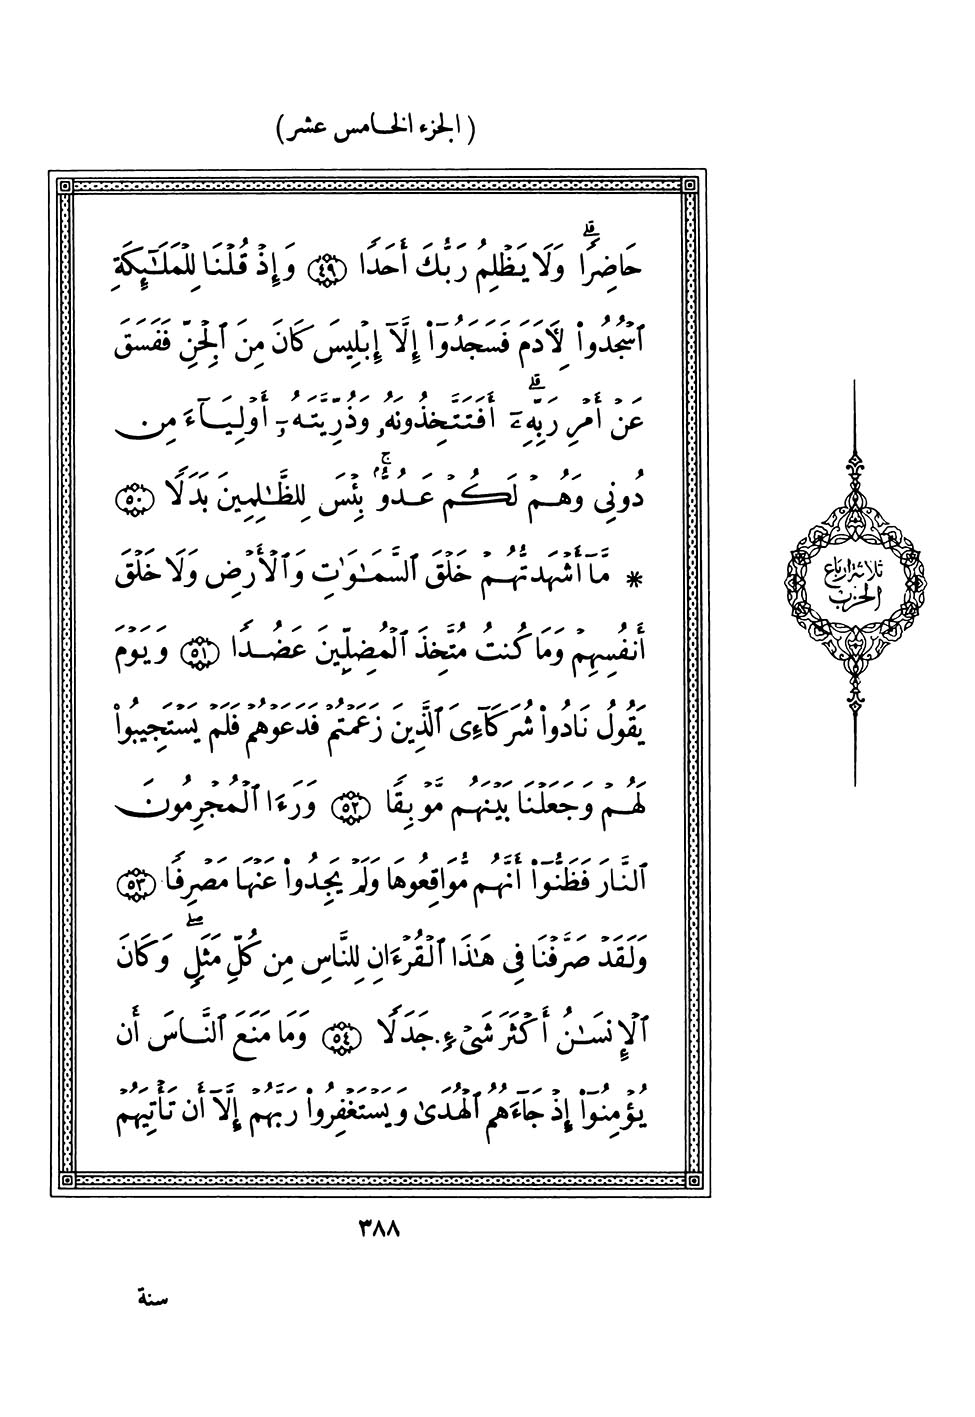 (الجزء الخامس عشر)
حَاضِرًاۗ وَلَا يَظْلِمُ رَبُّكَ أَحَدًا ﴿٤٩﴾ وَإِذْ قُلْنَا لِلْمَلَـٰٓئِكَةِ
ٱسْجُدُوا۟ لِأَدَمَ فَسَجَدُوٓا۟ إِلَّآ إِبْلِيسَ كَانَ مِنَ ٱلْجِنِّ فَفَسَقَ
عَنْ أَمْرِ رَبِّهِۦٓۗ أَفَتَتَّخِذُونَهُۥ وَذُرِّيَّتَهُۥٓ أَوْلِيَآءَ مِن
دُونِى وَهُمْ لَكُمْ عَدُوٌّۢۚ بِئْسَ لِلظَّـٰلِمِينَ بَدَلًا ﴿٥٠﴾
* مَّآ أَشْهَدتُّهُمْ خَلْقَ ٱلسَّمَـٰوَٰتِ وَٱلْأَرْضِ وَلَا خَلْقَ
أَنفُسِهِمْ وَمَا كُنتُ مُتَّخِذَ ٱلْمُضِلِّينَ عَضُدًا ﴿٥١﴾ وَيَوْمَ
يَقُولُ نَادُوا۟ شُرَكَآءِىَ ٱلَّذِينَ زَعَمْتُمْ فَدَعَوْهُمْ فَلَمْ يَسْتَجِيبُوا۟
لَهُمْ وَجَعَلْنَا بَيْنَهُم مَّوْبِقًا ﴿٥٢﴾ وَرَءَا ٱلْمُجْرِمُونَ
ٱلنَّارَ فَظَنُّوٓا۟ أَنَّهُم مُّوَاقِعُوهَا وَلَمْ يَجِدُوا۟ عَنْهَا مَصْرِفًا ﴿٥٣﴾
وَلَقَدْ صَرَّفْنَا فِى هَـٰذَا ٱلْقُرْءَانِ لِلنَّاسِ مِن كُلِّ مَثَلٍۖ وَكَانَ
ٱلْإِنسَـٰنُ أَكْثَرَ شَىْءٍ جَدَلًا ﴿٥٤﴾ وَمَا مَنَعَ ٱلنَّاسَ أَن
يُؤْمِنُوٓا۟ إِذْ جَآءَهُمُ ٱلْهُدَىٰ وَيَسْتَغْفِرُوا۟ رَبَّهُمْ إِلَّآ أَن تَأْتِيَهُمْ
ثلاثة ارباع
الحزب
٣٨٨
سنة